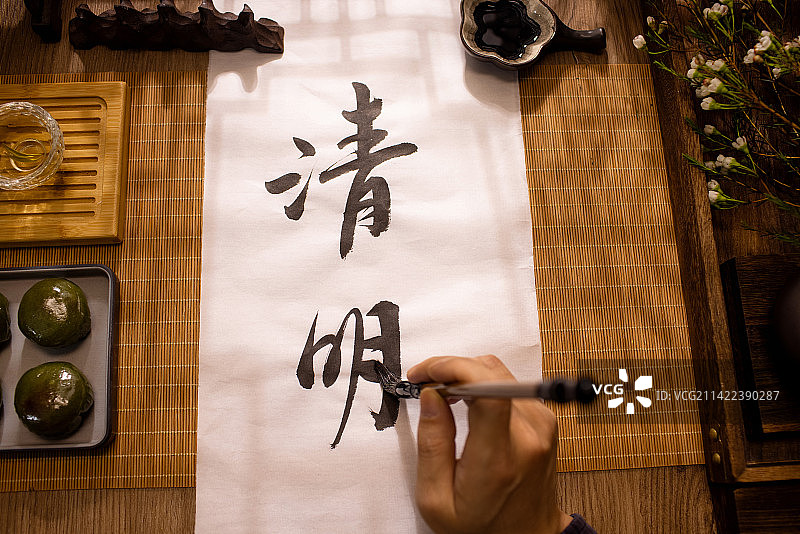 清
明
VCG VCG211422390287